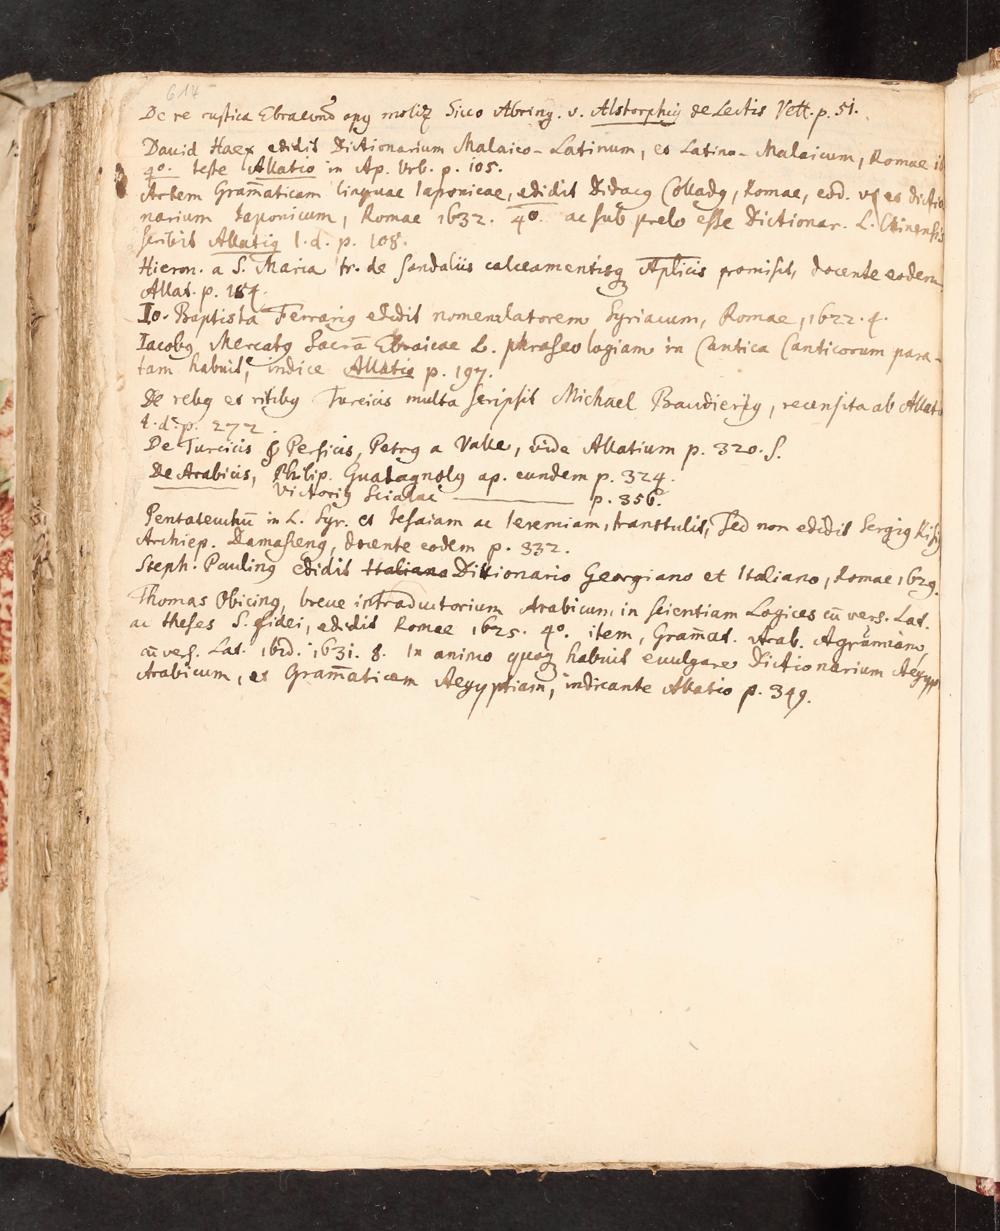 614
De re rustica Ebraeorum opꝰ molitꝰ Sicco Abring. v. Alstorphiꝰ de Lectis Vett. p. 51.
Dauid Haex edidit Dictionarium Malaico-Latinum, et Latino-Malaicum, Romae
4º. teste Allatio in Ap. Urb. p. 105.
Artem Gram̄aticam linguae Iaponicae, edidit Didacꝰ Colladꝰ, Romae, eod. ut et dictio
narium Iaponicum, Romae 1632. 4º. ac sub prelo esse Dictionar. L. Chinensis
scribit Allatiꝰ l. d. p. 108.
Hieron. a S. Maria tr. de sandaliis calceamentisq Aplicis promisit, docente eodem
Allat. p. 164.
Io. Baptista Ferrariꝰ edidit nomenclatorem Syriacum, Romae, 1622. 4.
Iacobꝰ Mercatꝰ Sacrā Ebraicae L. phraseologiam in Cantica Canticorum para-
tam habuit, indice Allatio p. 197.
De rebꝰ et ritibꝰ Turcicis multa scripsit Michael Baudieriꝰ, recensita ab Allat
l. d. p. 272.
De Turcicis & Persicis, Petrꝰ a Valle, vide Allatium p. 320. s.
De Arabicis, Philip. Guadagnolꝰ ap. eundem p. 324.
Victoriꝰ Scialac ——— p. 356.
Pentateuchū in L. Syr. et Iesaiam ac Ieremiam, transtulit, sed non edidit Sergiꝰ Risiꝰ
Archiep. Damascenꝰ, docente eodem p. 332.
Steph. Paulinꝰ edidit Italiano Dittionario Georgiano et Italiano, Romae 1629.
Thomas Obicinꝰ, breue introductorium Arabicum in scientiam Logices cū vers. Lat.
ac theses S. fidei, edidit Romae 1625. 4º. item, Gramat. Arab. Agrumiam,
cū vers. Lat. ibid. 1631. 8. In animo quoq habuit euulgare Dictionarium Aegypt
Arabicum, et Gram̄aticam Aegyptiam, indicante Allatio p. 349.